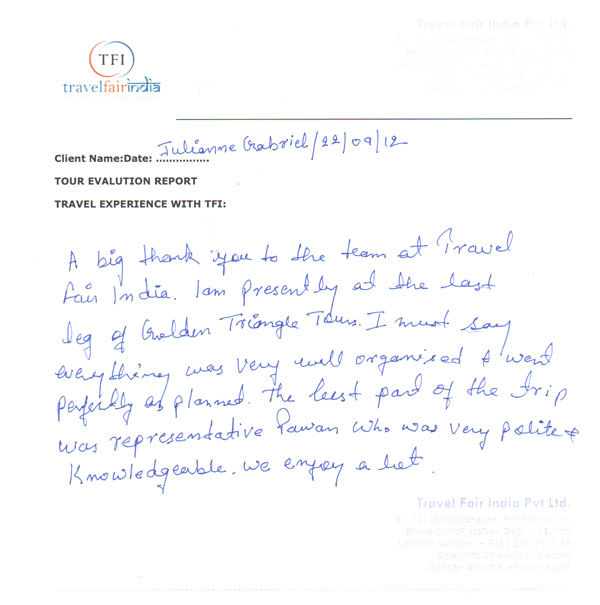 Travel Fair India Pvt Ltd.
TFI
travelfairindia
Client Name:Date: Julianne Gabriel/22/09/12
TOUR EVALUTION REPORT
TRAVEL EXPERIENCE WITH TFI:
A big thank you to the team at Travel
Fair India. I am presently at the last
leg of Golden Triangle Tours. I must say
everything was very well organised & went
perfectly as planned. The best part of the trip
was representative Pawan who was very polite &
Knowledgeable. we enjoy a lot.
Travel Fair India Pvt Ltd.